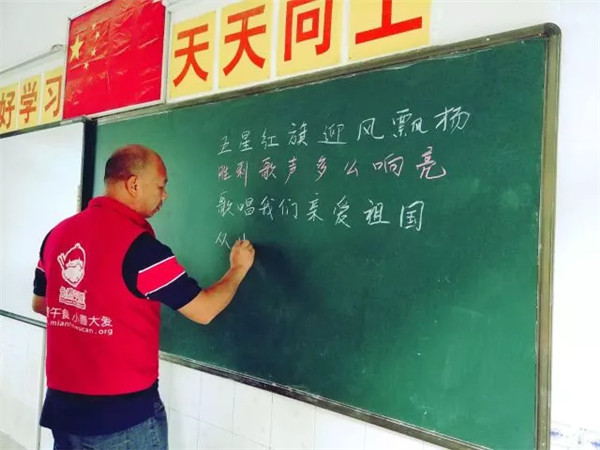 好学习
天天向上
五星红旗迎风飘扬
胜利歌声多么响亮
歌唱我们亲爱祖国
从
小善大爱
wucan.org